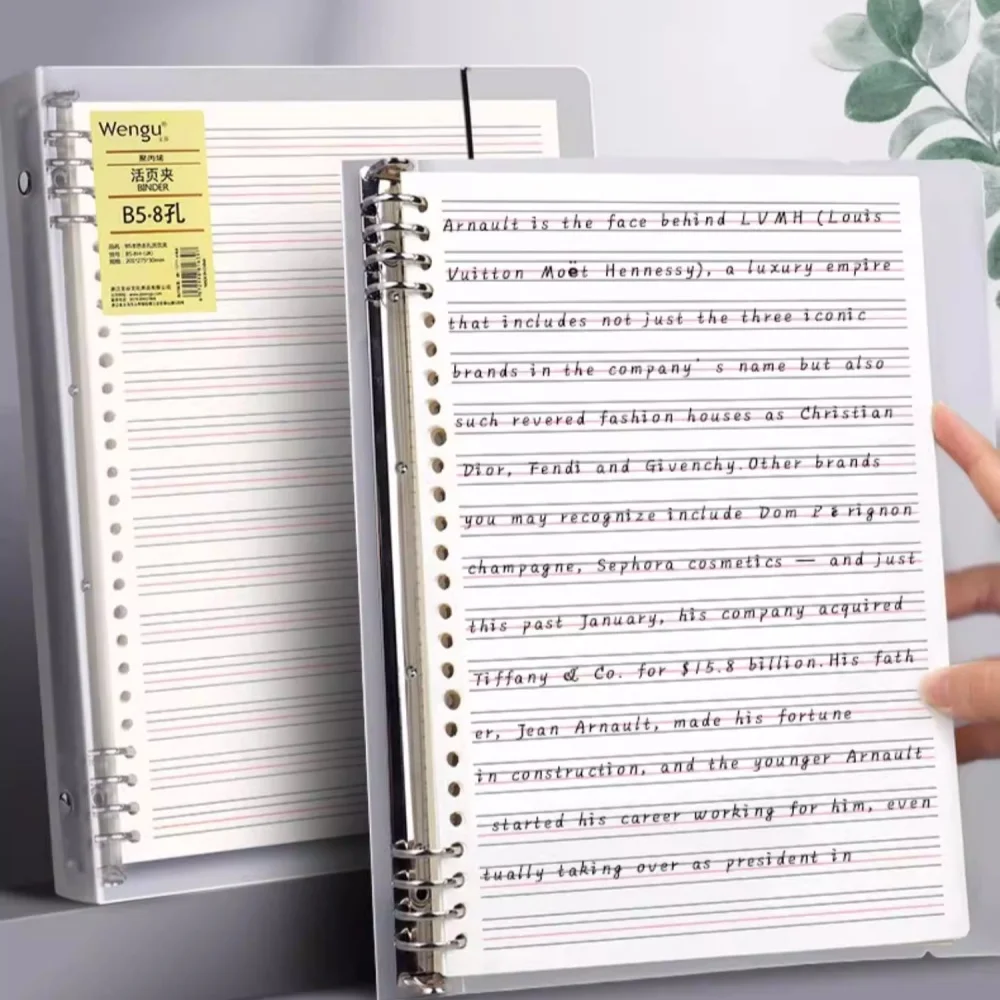 Wengu®
聚丙烯
活页夹
BINDER
B5·8孔
Arnault is the face behind LVMH (Louis
Vuitton Moët Hennessy), a luxury empire
that includes not just the three iconic
brands in the company's name but also
such revered fashion houses as Christian
Dior, Fendi and Givenchy.Other brands
you may recognize include Dom Pèrignon
champagne, Sephora cosmetics — and just
this past January, his company acquired
Tiffany & Co. for $15.8 billion.His fath
er, Jean Arnault, made his fortune
in construction, and the younger Arnault
started his career working for him, even
tually taking over as president in